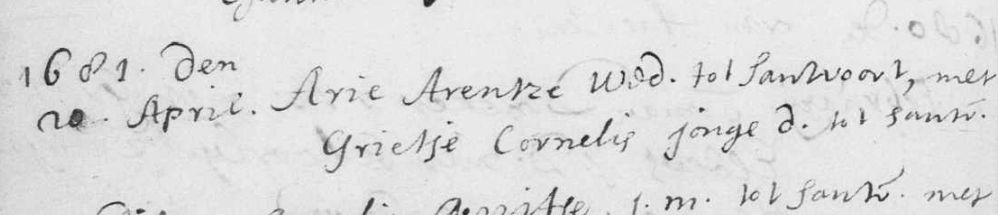 1681. Den
20. April. Arie Arentze Wed. tot Santvoort, met
Grietje Cornelis jonge d. tot Santv.
j. m. tot Santv. met